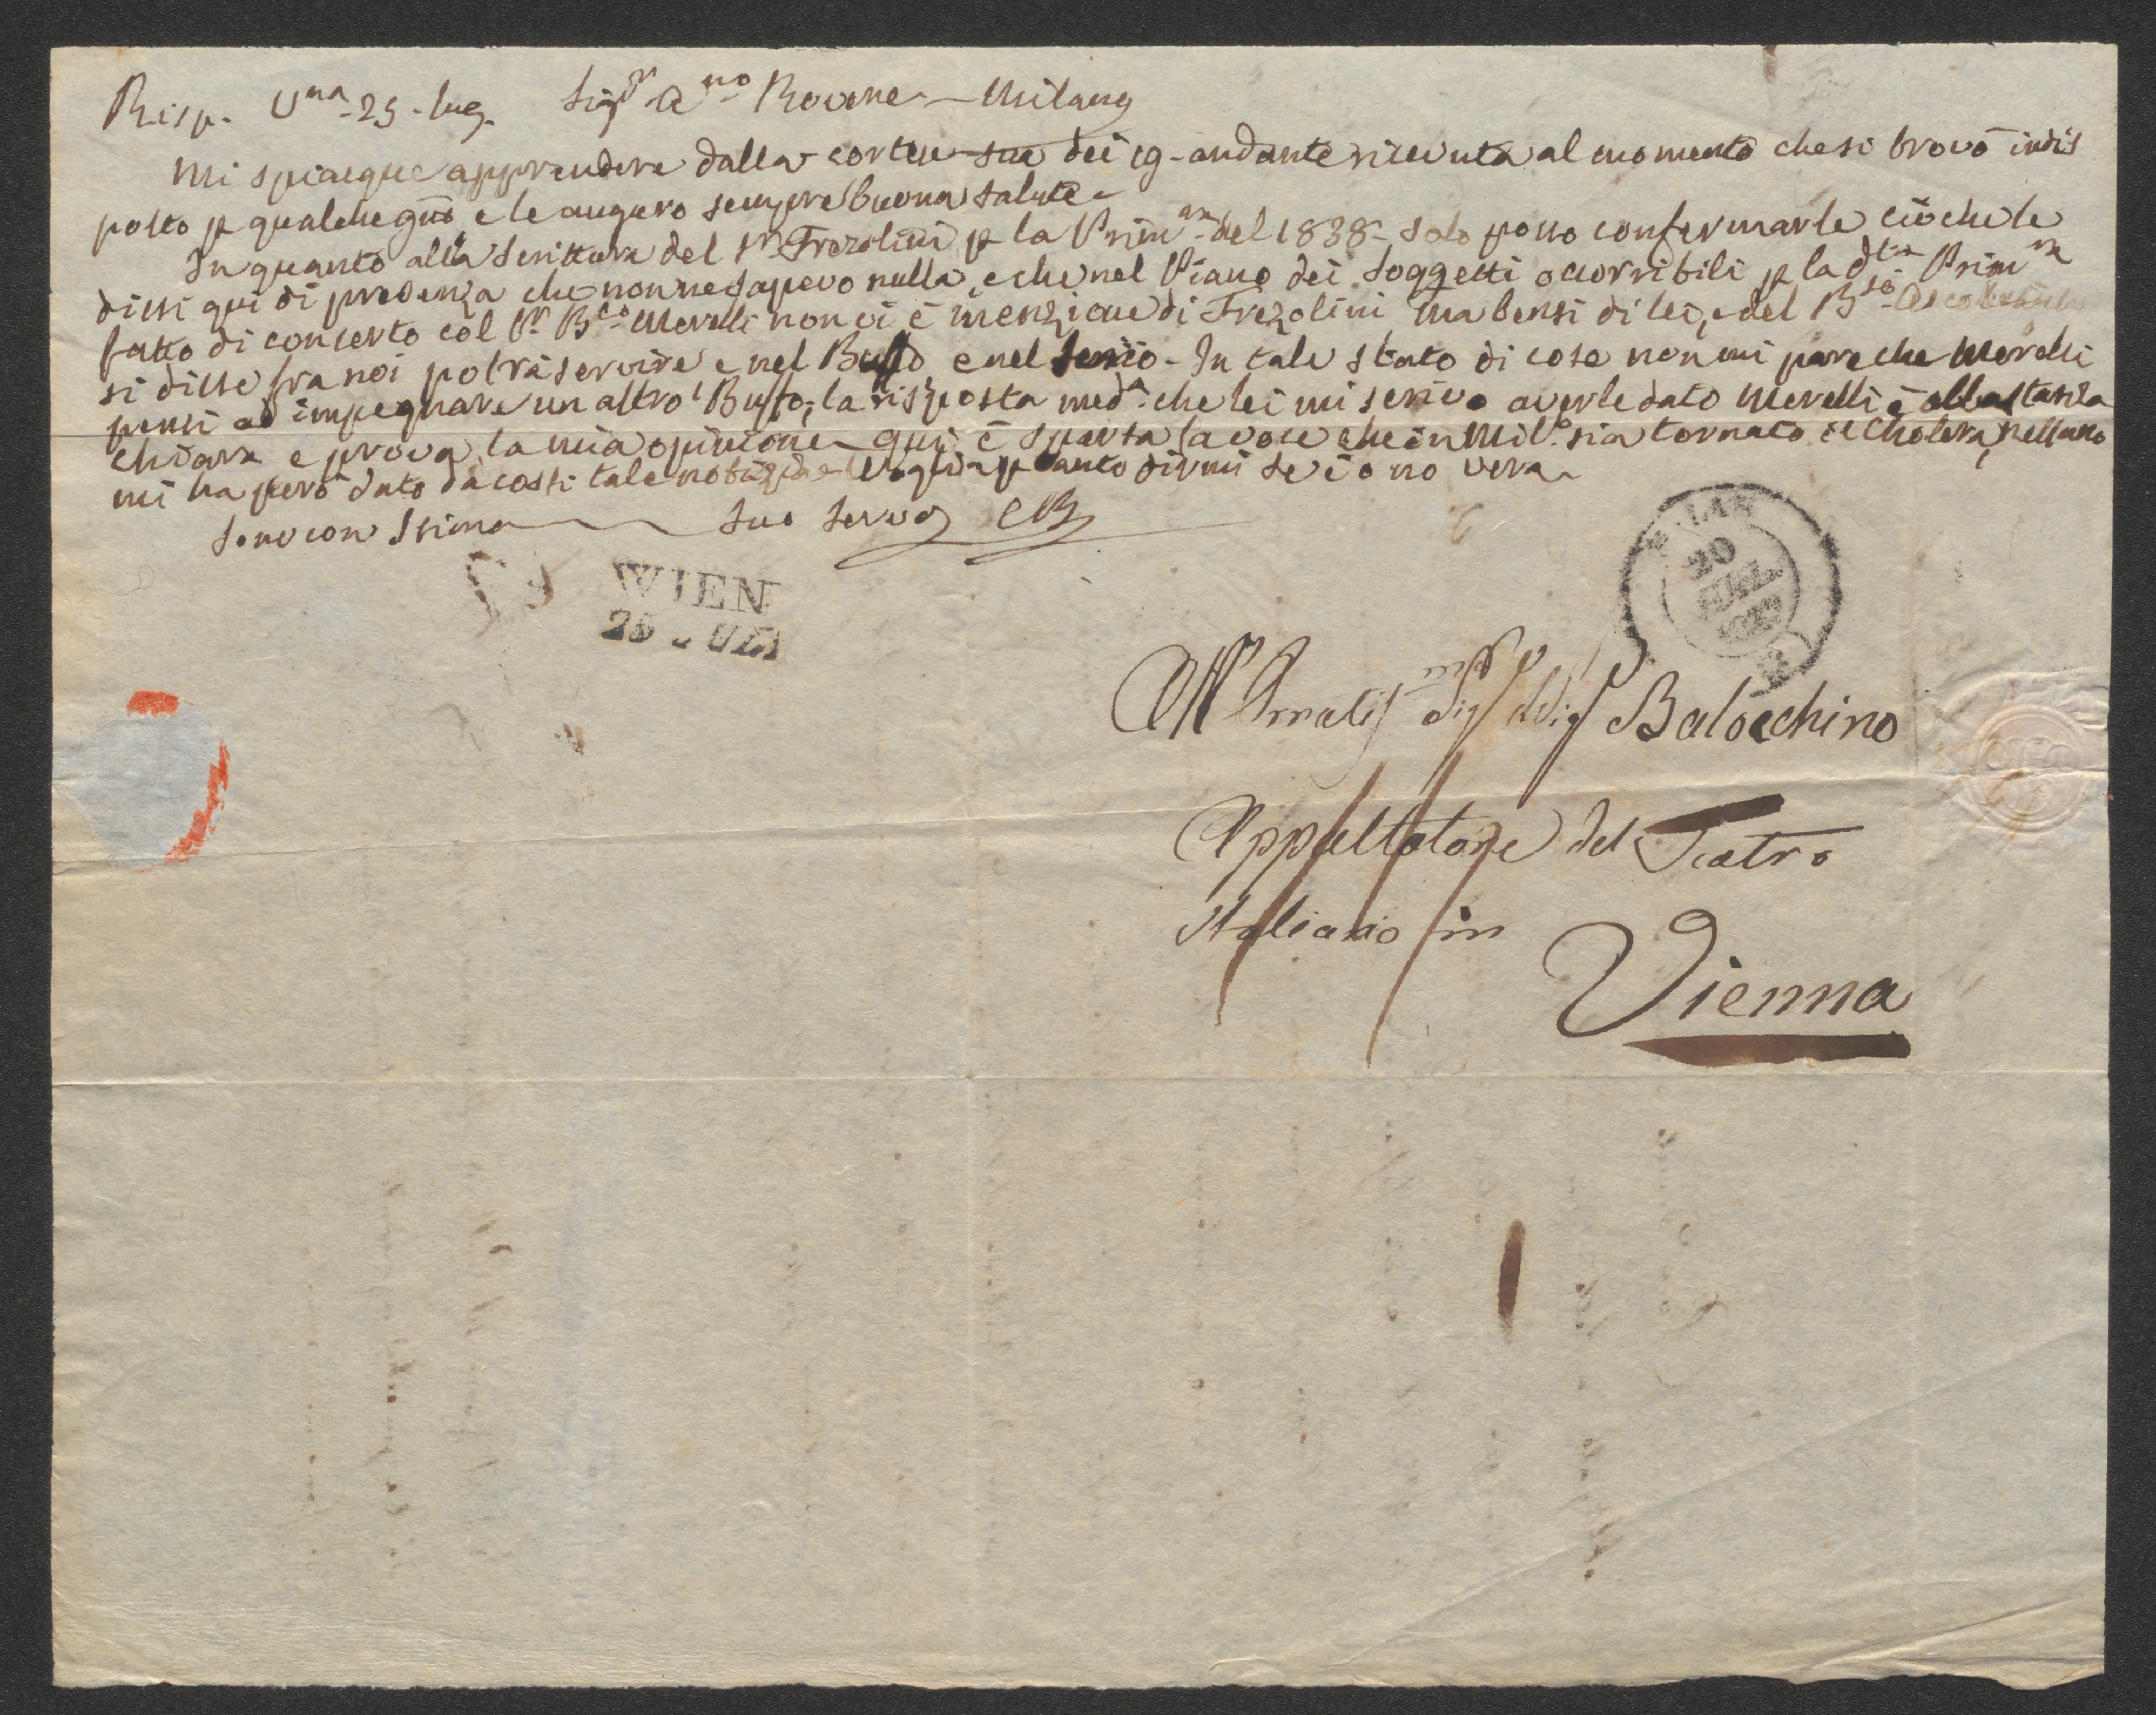 Risp. Vna 25. lug. Sigr Ano Rovere Milano
Mi spiacque apprendere dalla cortese sua dei 19. andante ricevuta al momento che si trovò indis
posto p qualche gno e le auguro sempre buona salute.
In quanto alla scrittura del Sr Frezolini p la Primra del 1838 solo posso confermarle ciò che le
dissi qui di presenza che non ne sapevo nulla, e che nel Piano dei Soggetti occorribili p la dta Primra
fatto di concerto col Sr Bo Merelli non vi è menzione di Frezolini, ma bensi di lei, e del Bso
si disse fra noi potrà servire e nel Buffo e nel Serio. In tale stato di cose non mi pare che Merelli
pensi ad impegnare un altro Buffo, la risposta meda che lei mi scrive averle dato Merelli è abbastanza
chiara e prova la mia opinione qui è sparsa la voce che in Milo sia tornato il Cholera, nessuno
mi ha però dato da costi tale notizia voglia ptanto dirmi se è o no vera.
Sono con Stima Suo Servo CB
WIEN
25 JULI
20
All' Ornatis mo Sigr Sigr Balocchino
Appaltatore del Teatro
Italiano in
Vienna